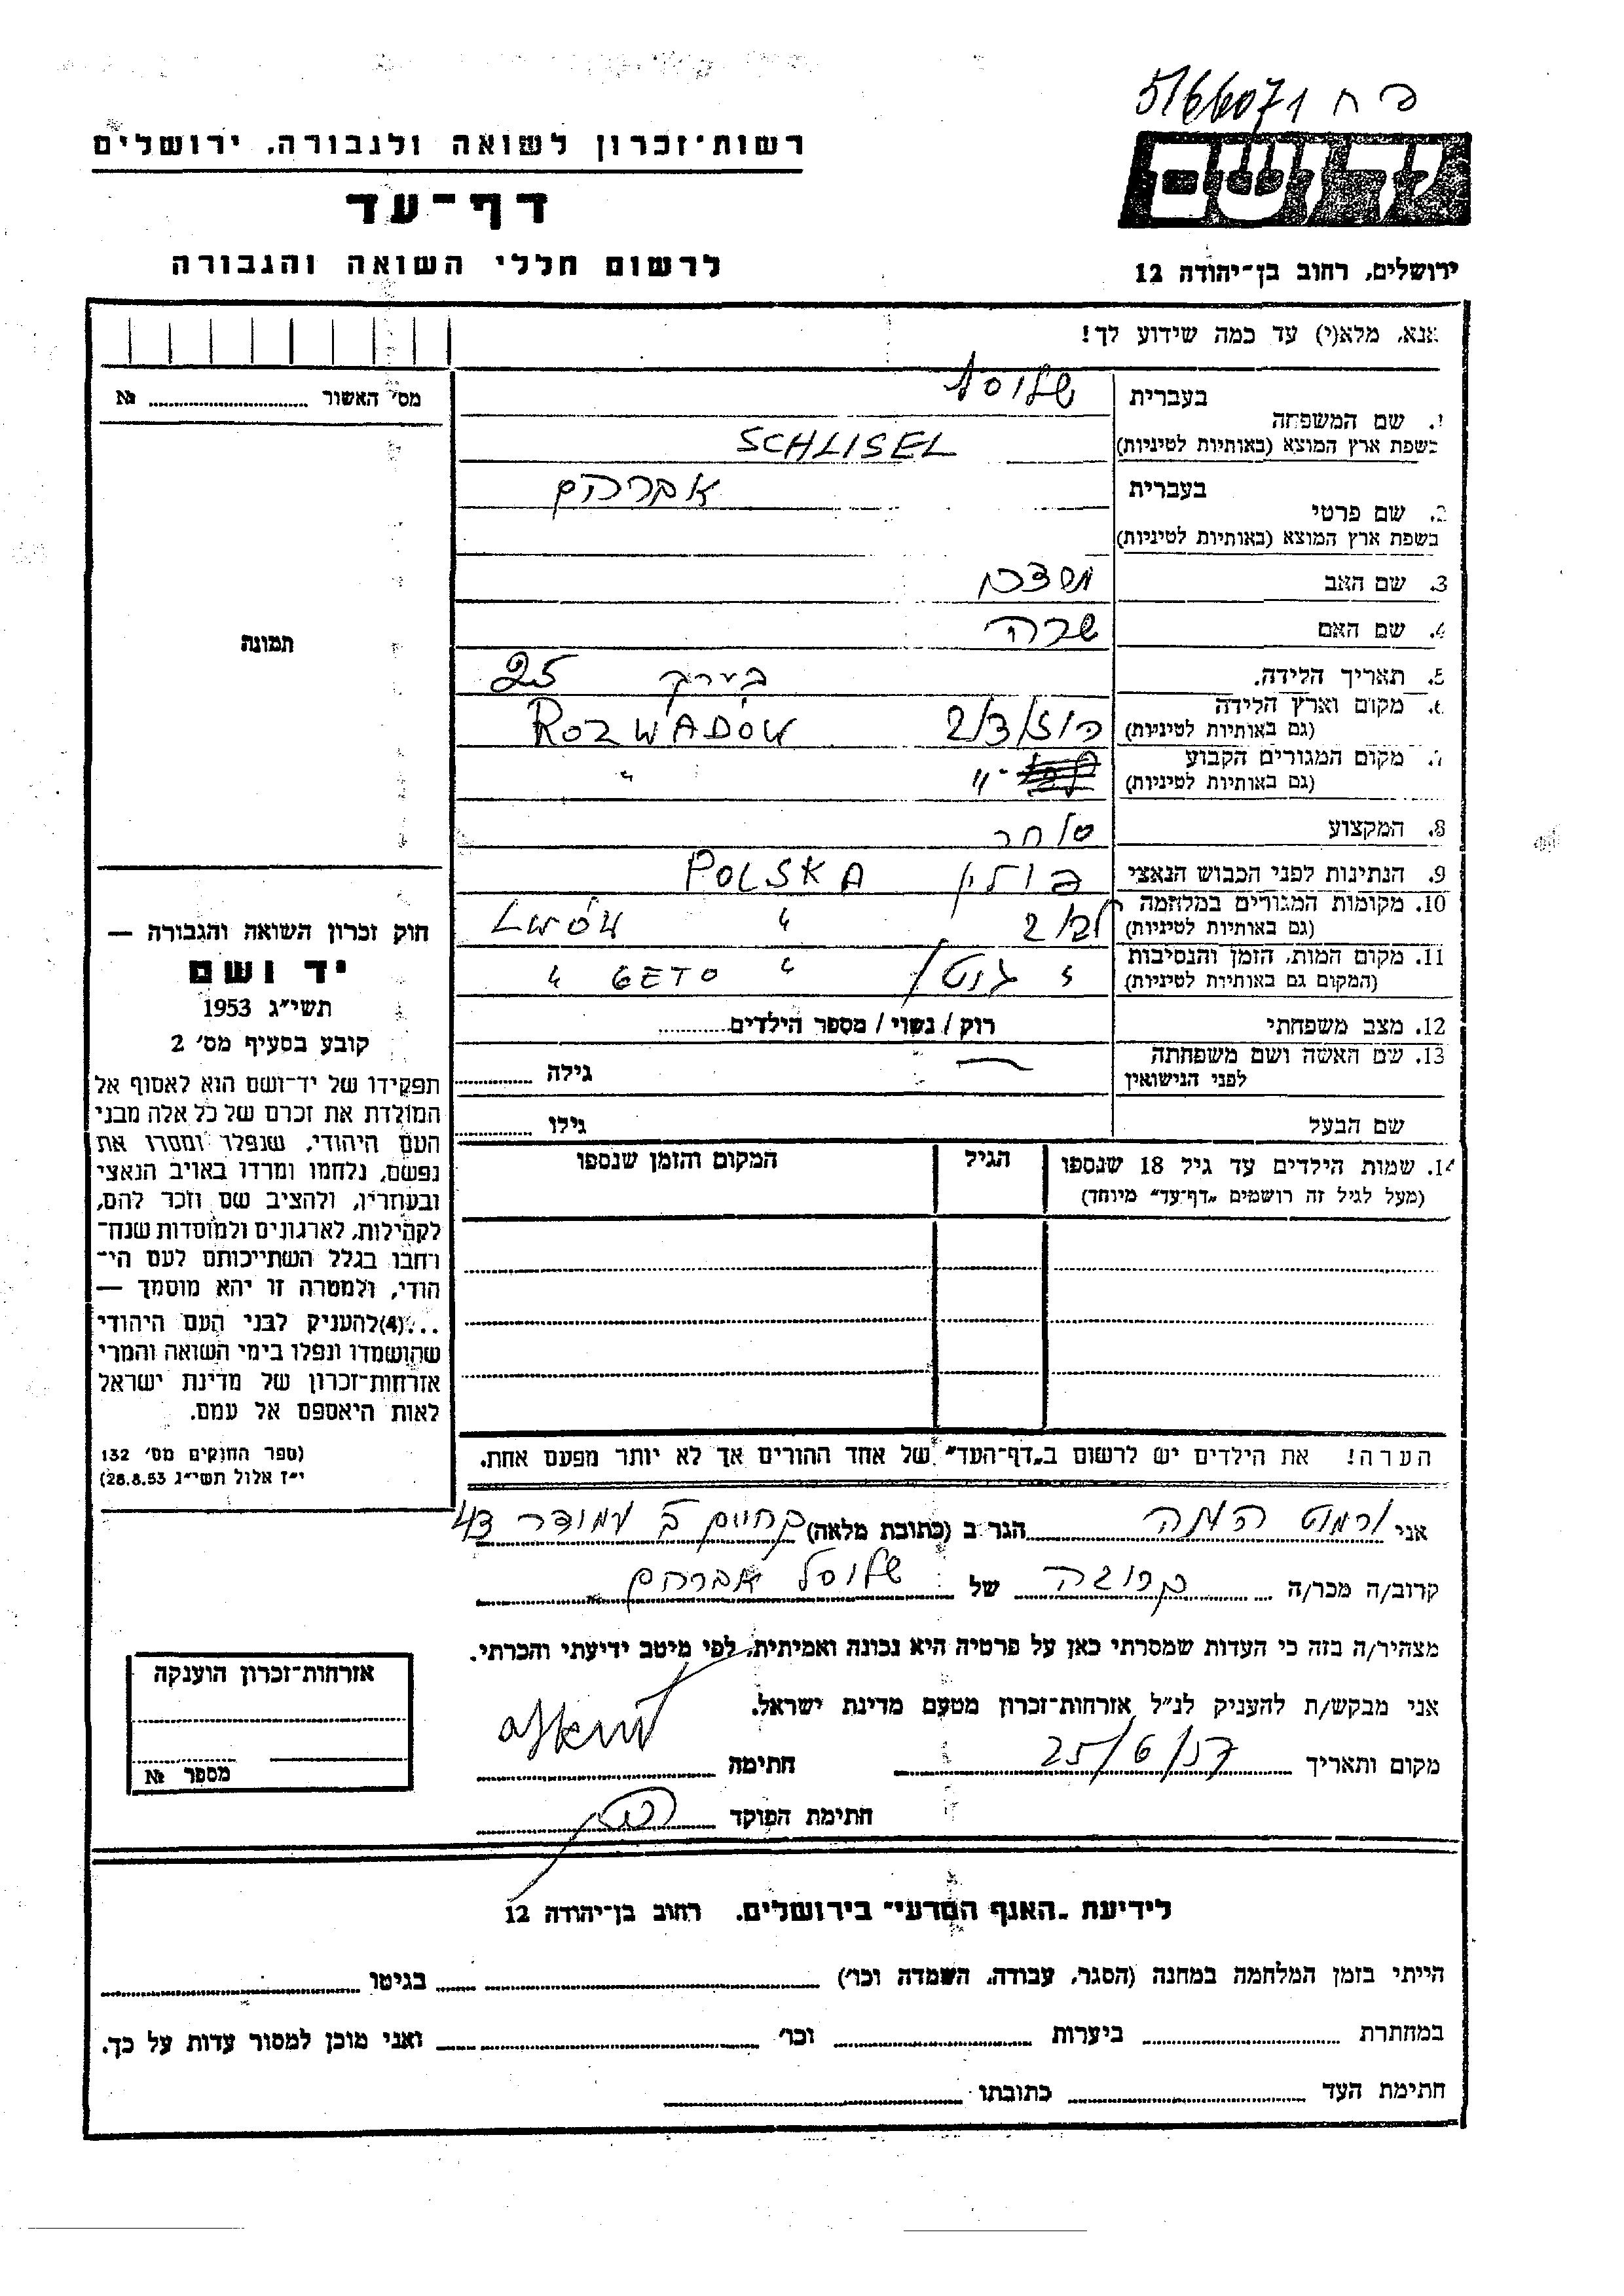 5166071 ח פ
יד ושם
רשות-זכרון לשואה ולגבורה, ירושלים
דף-עד
לרשום חללי השואה והגבורה
ירושלים, רחוב בן-יהודה 12
אנא, מלא(י) עד כמה שידוע לך!
מס' האשור № ............
תמונה
בעברית שלוסל
1. שם המשפחה
בשפת ארץ המוצא (באותיות לטיניות) SCHLISEL
בעברית אברהם
2. שם פרטי
בשפת ארץ המוצא (באותיות לטיניות)
3. שם האב
4. שם האם שרה
5. תאריך הלידה. בערך 25
6. מקום וארץ הלידה
(גם באותיות לטיניות) ROZWADÓW
7. מקום המגורים הקבוע
(גם באותיות לטיניות) -"- "
8. המקצוע סוחר
9. הנתינות לפני הכבוש הנאצי פולין POLSKA
10. מקומות המגורים במלחמה
(גם באותיות לטיניות) לבוב " LWÓW
11. מקום המות, הזמן והנסיבות
(המקום גם באותיות לטיניות) " גטו " GETO "
12. מצב משפחתי רוק / נשוי / מספר הילדים............
13. שם האשה ושם משפחתה
לפני הנישואין — גילה ............
שם הבעל גילו ............
14. שמות הילדים עד גיל 18 שנספו
(מעל לגיל זה רושמים „דף-עד" מיוחד)
הגיל
המקום והזמן שנספו
הערה! את הילדים יש לרשום ב„דף-העד" של אחד ההורים אך לא יותר מפעם אחת.
חוק זכרון השואה והגבורה —
יד ושם
תשי"ג 1953
קובע בסעיף מס' 2
תפקידו של יד-ושם הוא לאסוף אל
המולדת את זכרם של כל אלה מבני
העם היהודי, שנפלו ומסרו את
נפשם, נלחמו ומרדו באויב הנאצי
ובעוזריו, ולהציב שם וזכר להם,
לקהילות, לארגונים ולמוסדות שנח-
רחבו בגלל השתייכותם לעם הי-
הודי, ולמטרה זו יהא מוסמך —
...(4)להעניק לבני העם היהודי
שהושמדו ונפלו בימי השואה והמרי
אזרחות-זכרון של מדינת ישראל
לאות היאספם אל עמם.
(ספר החוקים מס' 132
י"ז אלול תשי"ג 28.8.53)
אני הגר ב (כתובת מלאה) קרית חיים ב
קרוב/ה מכר/ה קרובה של שלוסל אברהם
מצהיר/ה בזה כי העדות שמסרתי כאן על פרטיה היא נכונה ואמיתית, לפי מיטב ידיעתי והכרתי.
אני מבקש/ת להעניק לנ"ל אזרחות-זכרון מטעם מדינת ישראל.
מקום ותאריך 25/6/57 חתימה
חתימת הפוקד
אזרחות-זכרון הוענקה
מספר №
לידיעת „האגף המדעי" בירושלים, רחוב בן-יהודה 12
הייתי בזמן המלחמה במחנה (הסגר, עבודה, השמדה וכו') ............ בגיטו ............
במחתרת ............ ביערות ............ וכו' ............ ואני מוכן למסור עדות על כך.
חתימת העד ............ כתובתו ............